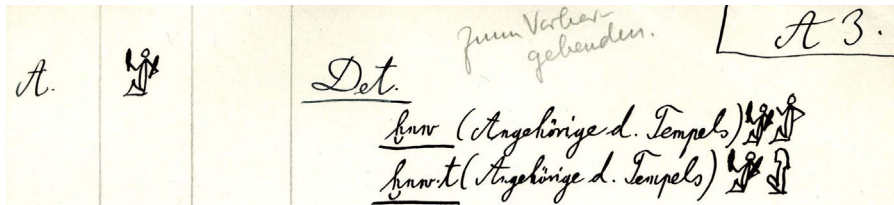 zum Vorher-
gehenden.
A 3.
A. Det.
ḫnw (Angehörige d. Tempels)
ḫnw.t (Angehörige d. Tempels)